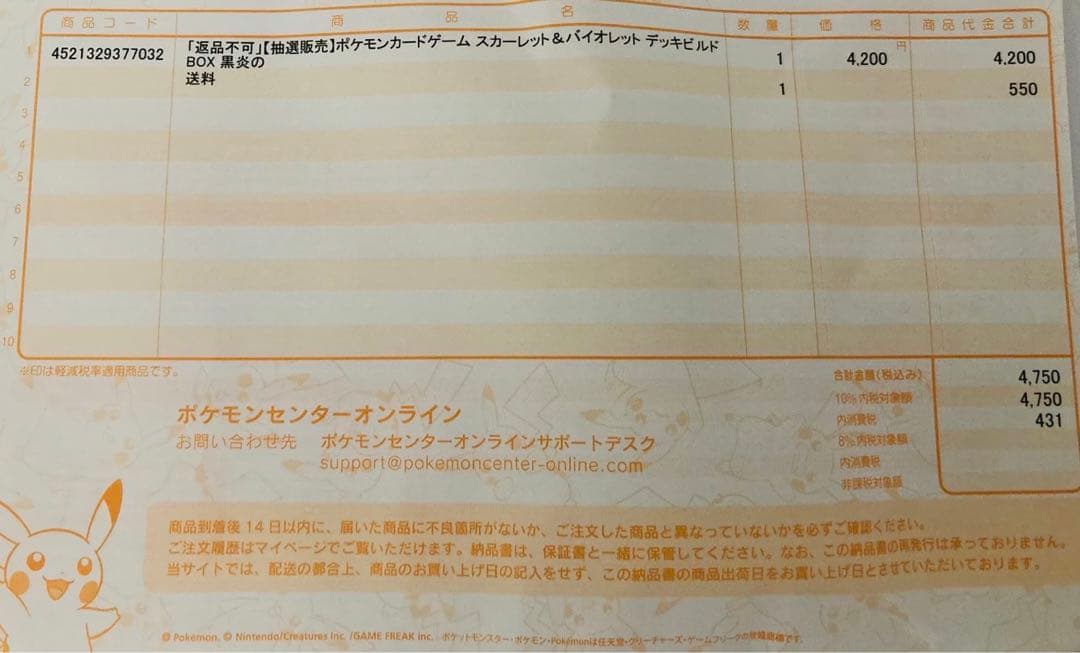 商品コード 商品名 数量 価格 商品代金合計
円
1 4521329377032 「返品不可」【抽選販売】ポケモンカードゲーム スカーレット＆バイオレット デッキビルド 1 4,200 4,200
BOX 黒炎の
2 送料 1 550
3
4
5
6
7
8
9
10
※印は軽減税率適用商品です。
合計金額(税込み) 4,750
10%内税対象額 4,750
内消費税 431
8%内税対象額
内消費税
非課税対象額
ポケモンセンターオンライン
お問い合わせ先 ポケモンセンターオンラインサポートデスク
support@pokemoncenter-online.com
商品到着後14日以内に、届いた商品に不良箇所がないか、ご注文した商品と異なっていないかを必ずご確認ください。
ご注文履歴はマイページでご覧いただけます。納品書は、保証書と一緒に保管してください。なお、この納品書の再発行は承っておりません。
当サイトでは、配送の都合上、商品のお買い上げ日の記入をせず、この納品書の商品出荷日をお買い上げ日とさせていただいております。
© Pokémon. © Nintendo/Creatures Inc. /GAME FREAK inc. ポケットモンスター・ポケモン・Pokémonは任天堂・クリーチャーズ・ゲームフリークの登録商標です。